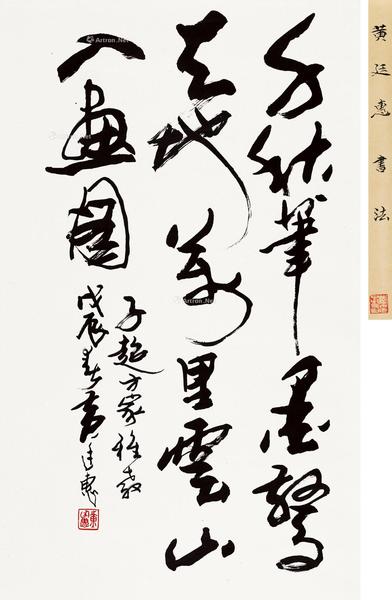 千秋筆墨驚
天地萬里雲山
入畫圖
子超方家雅教
戊辰春黄廷惠
黄廷惠書法